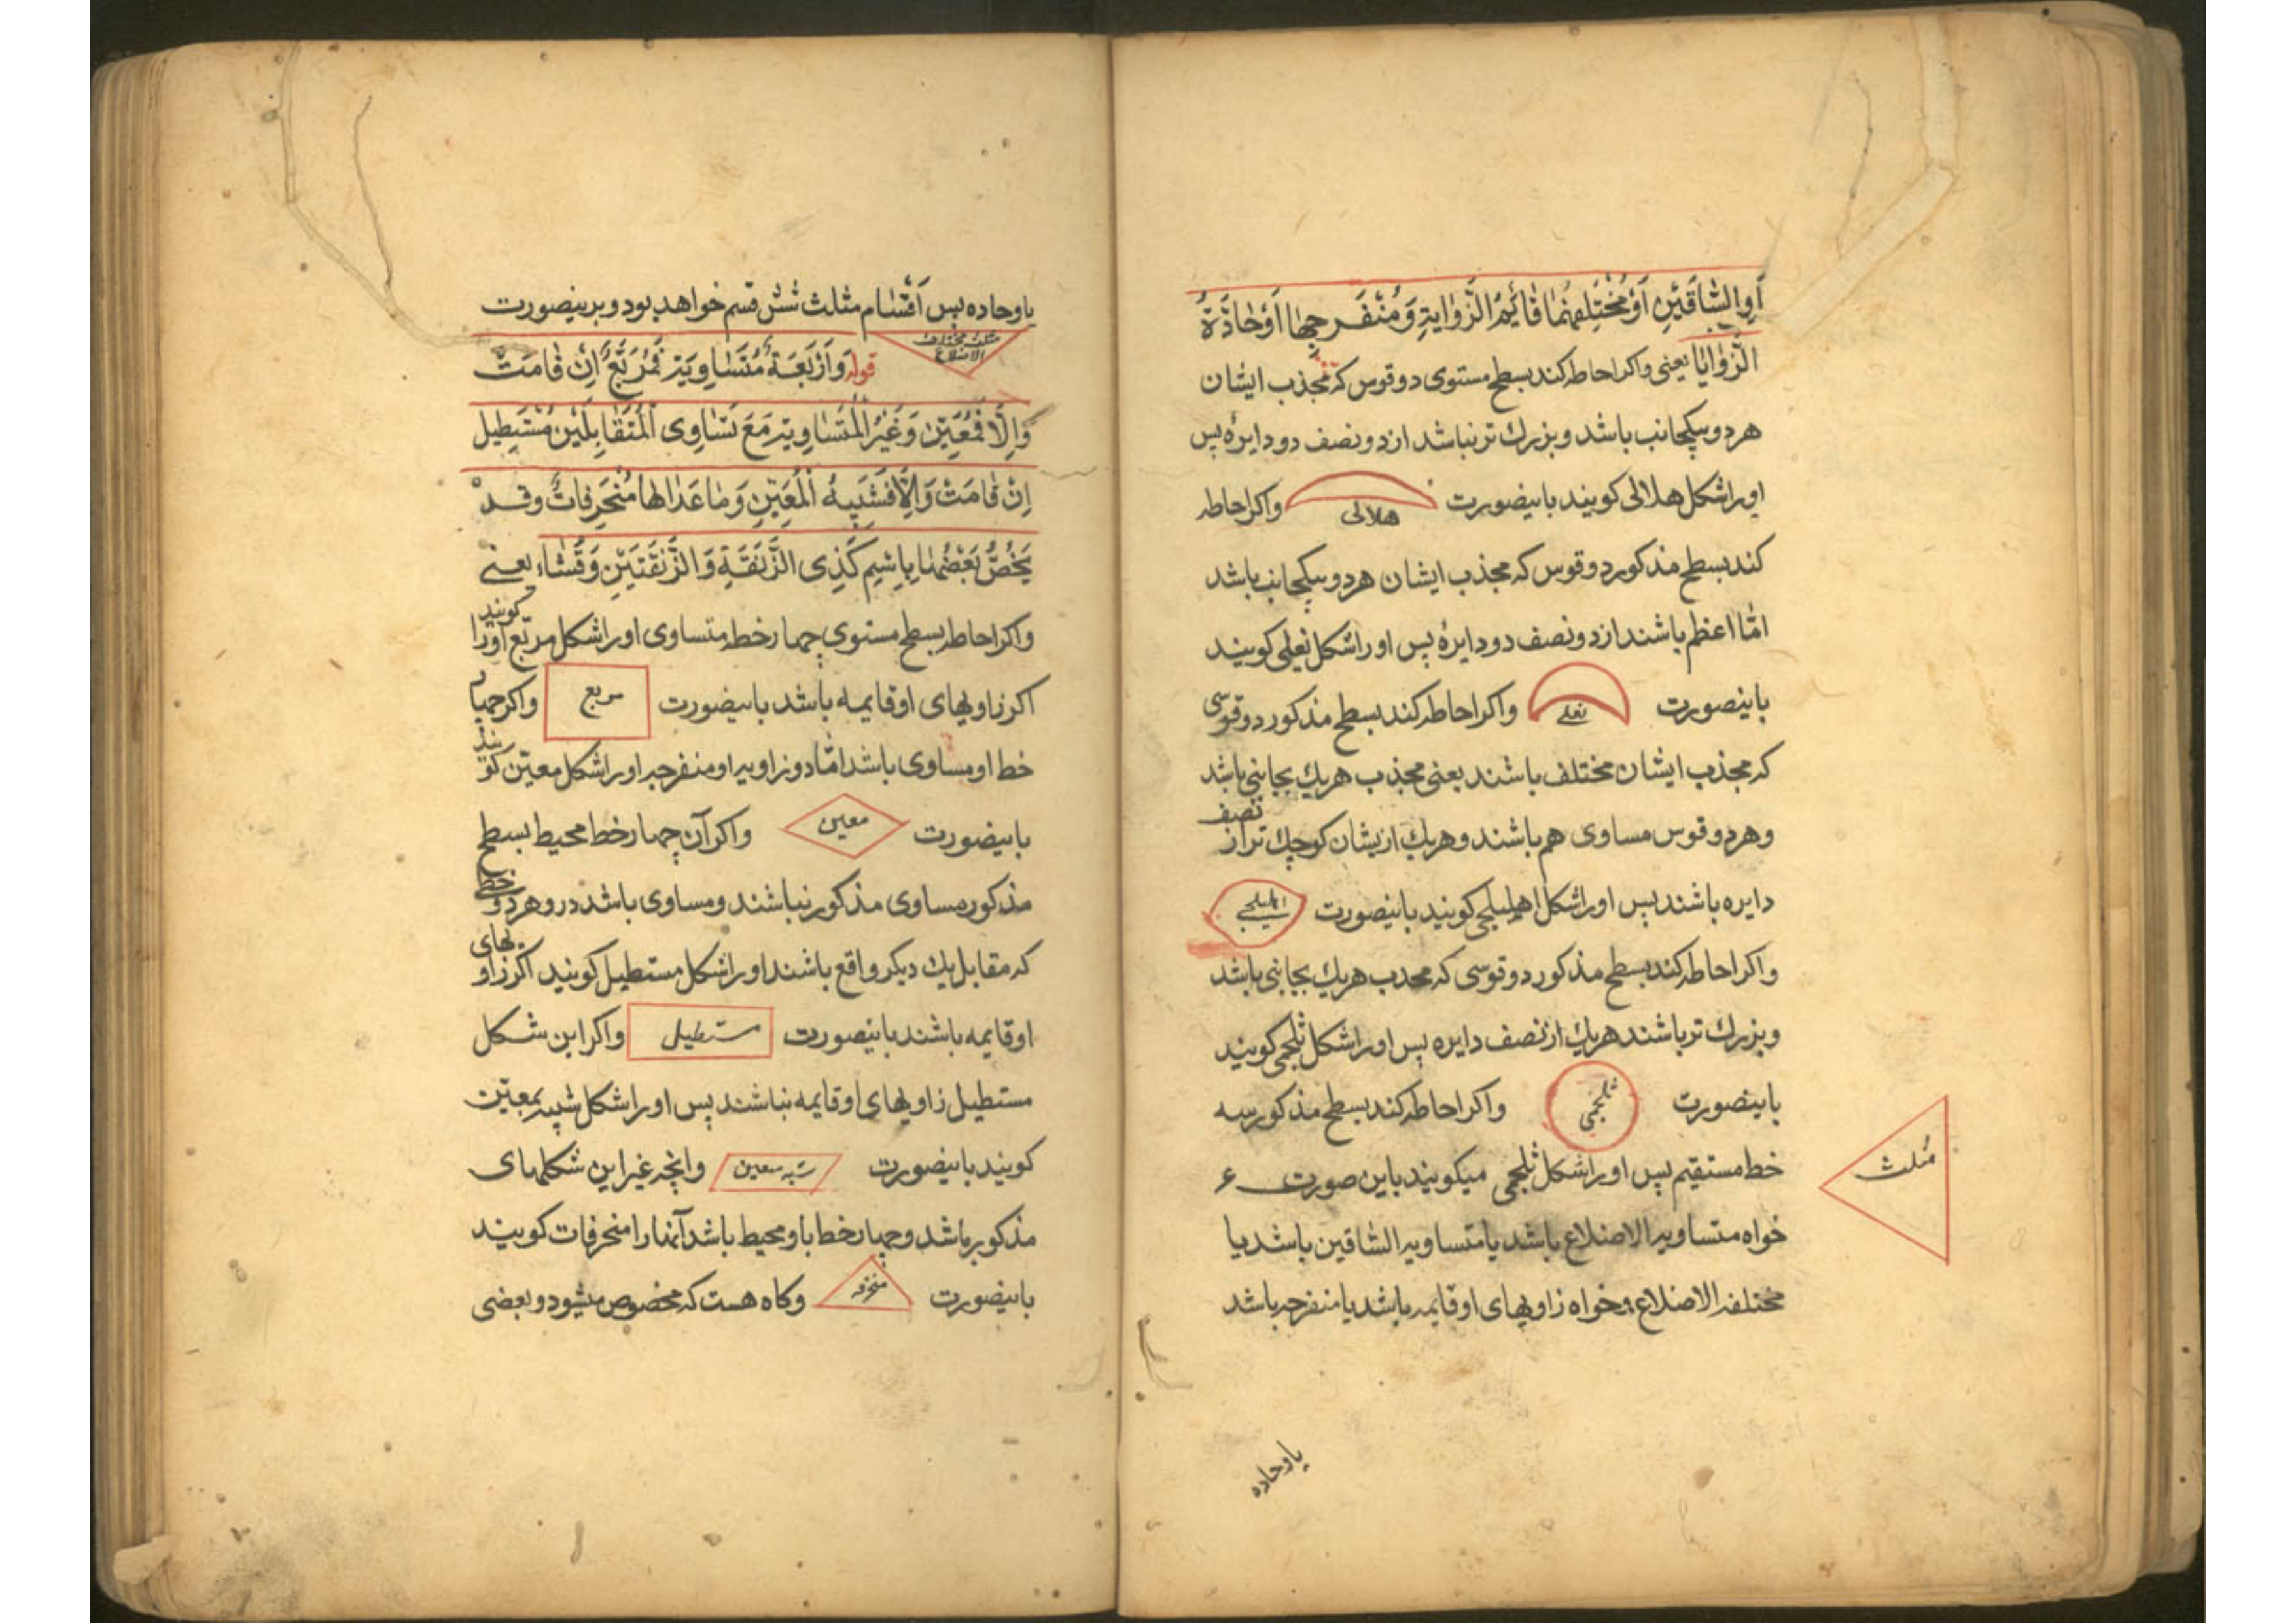 اَوِالسّٰاقَیْنِ اَوْمُخْتَلِفهُمٰا قٰائِمُ الزّٰوایَةِ وَمُنْفَرِجِهٰا اَوْحٰادَّةُ
الزَّوٰایٰا یعنی واکراحاطه کند بسطح مستوی دوقوس که محذب ایشان
هردو بیکجانب باشد و بزرك تر نباشد از دو نصف دو دایرهٔ پس
اورا شکل هلالی کویند باینصورت هلالی واکراحاطه
کند بسطح مذکور دوقوس که محذب ایشان هردو بیکجانب باشد
امّا اعظم باشند از دو نصف دو دایرهٔ پس اورا شکل نعلی کویند
باینصورت نعلے واکراحاطه کند بسطح مذکور دوقوسی
که محذب ایشان مختلف باشند یعنی محذب هریك بجانبی باشد
وهردو قوس مساوی هم باشند وهریك از یشان کوچك تر از نصف
دایره باشند پس اورا شکل اهلیلجی کویند باینصورت اهلیلجے
واکراحاطه کند بسطح مذکور دوقوسی که محدب هریك بجانبی باشد
و بزرك تر باشند هریك از نصف دایره پس اورا شکل ثلجمی کویند
باینصورت ثلجمی واکراحاطه کند بسطح مذکور سه
خط مستقیم پس اورا شکل ثلجمی میکویند باین صورت ع
مثلث
خواه متساویه الاضلاع باشد یا متساویه الساقین باشد یا
مختلفه الاضلاع وخواه زاویهای او قایمه باشد یا منفرجه باشد
یاوحاده
یاوحاده پس اَقْسٰام مثلث شش قسم خواهد بود و برینصورت
مثلث مختلف الاضلاع قوله وَاَرْبَعَةٌ مُتَسٰاوِیَة فَمُرَبَّعٌ اِنْ قٰامَتْ
وَاِلّٰا فَمُعَیَّن وَغَیْرُ الْمُتَسٰاوِیَة مَعَ تَسٰاوِی الْمُتَقٰابِلَیْن مُسْتَطِیل
اِنْ قٰامَتْ وَاِلّٰا فَشَبِیهُ الْمُعَیَّنِ وَمٰا عَدٰاهٰا مُنْحَرِفاتٌ وقَدْ
یَخُصُّ بَعْضُهٰا بِاِسْمٍ کَذِی الزَّنَقَةِ وَالزَّنَقَتَیْن وَقَثّاء یعنے
واکراحاطه بسطح مستوی چهار خط متساوی اورا شکل مربّع اورا کویند
اکر زاویهای او قایمه باشد باینصورت مربع واکر چهار
خط او مساوی باشد امّا دو زاویه او منفرجه اورا شکل معیّن کویند
باینصورت معین واکر آن چهار خط محیط بسطح
مذکور مساوی مذکور نباشند ومساوی باشد در وهردو خطی
که مقابل یك دیکر واقع باشند اورا شکل مستطیل کویند اکر زاویهای
او قایمه باشند باینصورت مستطیل واکر این شکل
مستطیل زاویهای او قایمه نباشند پس اورا شکل شبیه بمعیّن
کویند باینصورت شبه معین وانچه غیر این شکلهای
مذکور باشد وچهار خط باو محیط باشد آنها را منحرفات کویند
باینصورت منحرفه وکاه هست که مخصوص میشود و بعضی